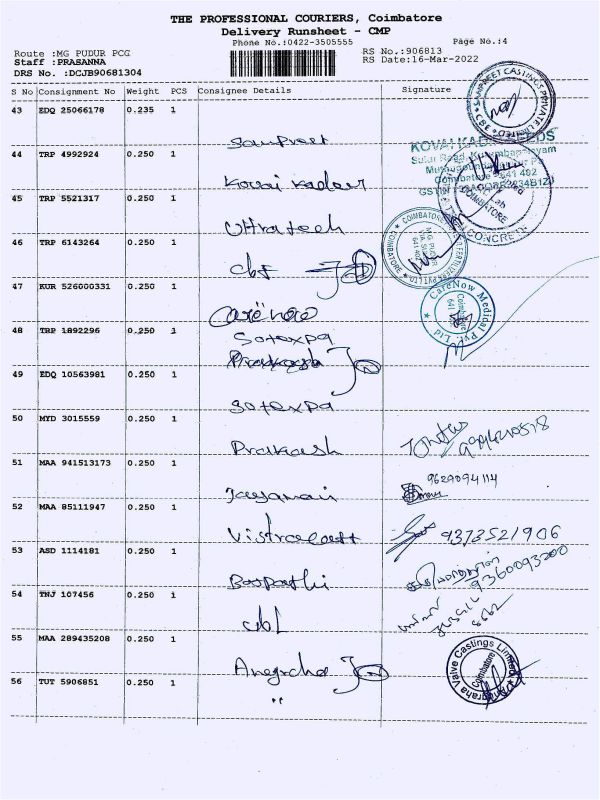 THE PROFESSIONAL COURIERS, Coimbatore
Delivery Runsheet - CMP
Phone No.:0422-3505555 Page No.:4
Route :MG PUDUR PCG RS No.:906813
Staff :PRASANNA RS Date:16-Mar-2022
DRS No. :DCJB90681304
S No Consignment No Weight PCS Consignee Details Signature
43 EDQ 25066178 0.235 1
Sanpreet
SANPREET CASTINGS PRIVATE Limited CBE
44 TRP 4992924 0.250 1
Kovai Kadeer
45 TRP 5521317 0.250 1
Ultratech
CONCRETE
COIMBATORE
46 TRP 6143264 0.250 1
cbf
47 KUR 526000331 0.250 1
Carenow
CareNow Medical Pvt. Ltd
Coimbatore
48 TRP 1892296 0.250 1
Sotexpa
Prakash
49 EDQ 10563981 0.250 1
Sotexpa
50 MYD 3015559 0.250 1
Prakash
51 MAA 941513173 0.250 1
9629094114
52 MAA 85111947 0.250 1
9373521906
53 ASD 1114181 0.250 1
9360093200
54 TNJ 107456 0.250 1
cbf
55 MAA 289435208 0.250 1
Anugraha
Anugraha Valve Castings Limited
Coimbatore
56 TUT 5906851 0.250 1
"